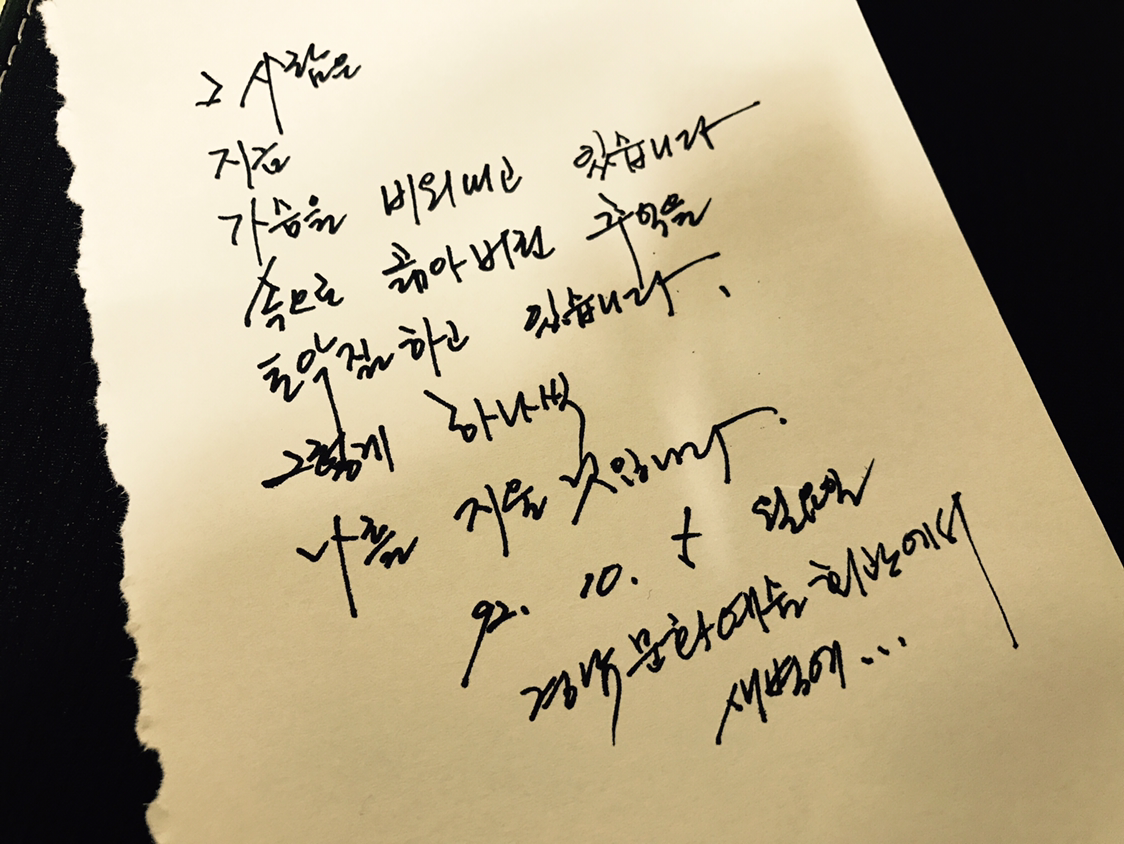 그 사람은
지금
가슴을 비워내고 있습니다
속으로 곪아버린 추억을
토악질 하고 있습니다.
그렇게 하나씩
나를 지울 것입니다.
92. 10. 5 일요일
경북문화예술회관에서
새벽에...